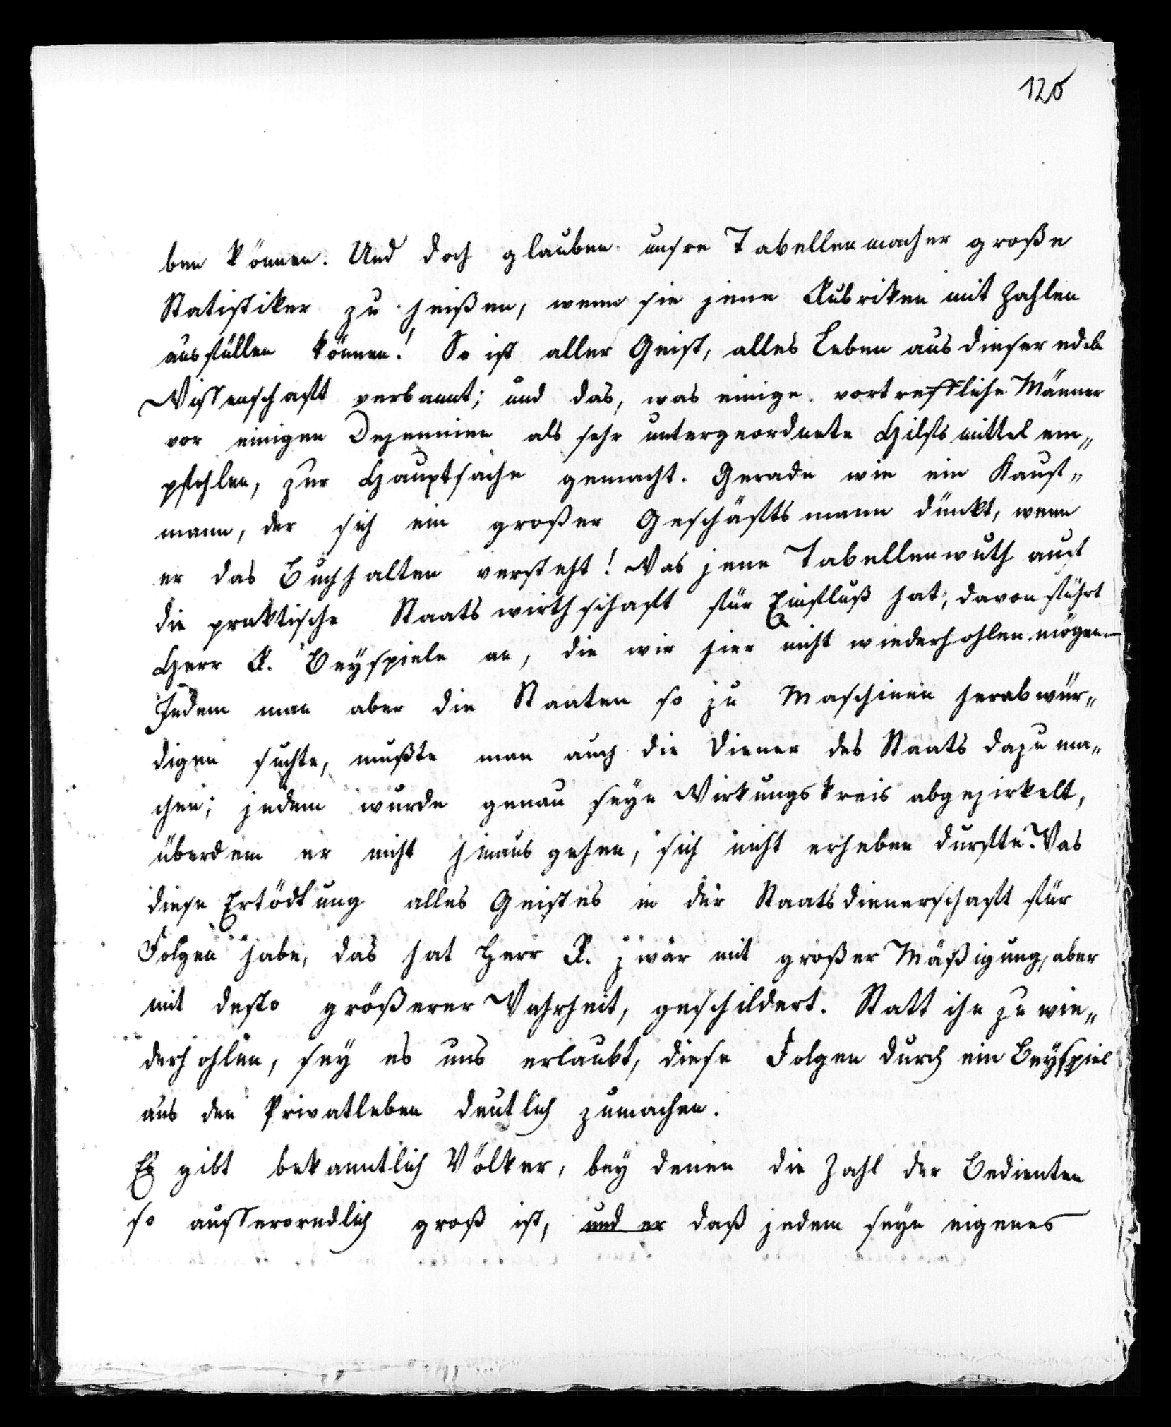 120
ben können. Und doch glauben unsre Tabellenmacher große
Statistiker zu heißen, wenn sie jene Rubriken mit Zahlen
ausfüllen können! So ist aller Geist, alles Leben aus dieser edeln
Wissenschaft verbannt; und das, was einige vortreffliche Männer
vor einigen Dezennien als sehr untergeordnete Hilfsmittel em„
pfohlen, zur Hauptsache gemacht. Gerade wie ein Kauf„
mann, der sich ein großer Geschäftsmann dünkt, wenn
er das Buchhalten versteht! Was jene Tabellenwuth auf
die praktische Staatswirthschaft für Einfluß hat, davon führt
Herr R. Beyspiele an, die wir hier nicht wiederhohlen mögen.
Indem man aber die Staaten so zu Maschinen herabwür„
digen suchte, mußte man auch die Diener des Staats dazu ma„
chen; jedem wurde genau seyn Wirkungskreis abgezirkelt,
überdem er nicht hinausgehen, sich nicht erheben durfte. Was
diese Ertödtung alles Geistes in der Staatsdienerschaft für
Folgen habe, das hat Herr R. zwar mit großer Mäßigung, aber
mit desto größerer Wahrheit, geschildert. Statt ihn zu wie„
derhohlen, sey es uns erlaubt, diese Folgen durch ein Beyspiel
aus den Privatleben deutlich zumachen.
Es gibt bekanntlich Völker, bey denen die Zahl der Bedienten
so ausserorndlich groß ist, und er daß jedem seyn eigenes